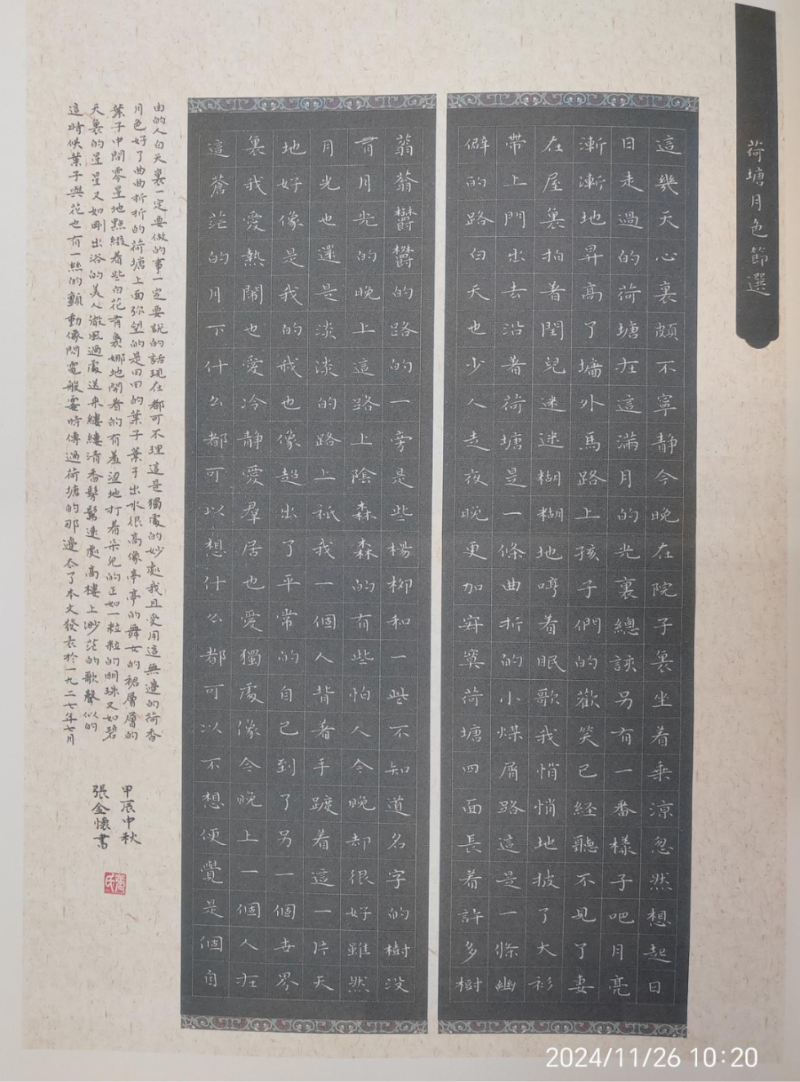 荷塘月色節選
這幾天心裏頗不寧靜今晚在院子裏坐着乘涼忽然想起日
日走過的荷塘在這滿月的光裏總該另有一番樣子吧月亮
漸漸地昇高了墻外馬路上孩子們的歡笑已經聽不見了妻
在屋裏拍着閏兒迷迷糊糊地哼着眠歌我悄悄地披了大衫
帶上門出去沿着荷塘是一條曲折的小煤屑路這是一條幽
僻的路白天也少人走夜晚更加寂寞荷塘四面長着許多樹
蓊蓊鬱鬱的路的一旁是些楊柳和一些不知道名字的樹没
有月光的晚上這路上陰森森的有些怕人今晚却很好雖然
月光也還是淡淡的路上祇我一個人背着手踱着這一片天
地好像是我的我也像超出了平常的自己到了另一個世界
裏我愛熱鬧也愛冷靜愛羣居也愛獨處像今晚上一個人在
這蒼茫的月下什么都可以想什么都可以不想便覺是個自
由的人白天裏一定要做的事一定要説的話現在都可不理這是獨處的妙處我且受用這無邊的荷香
月色好了曲曲折折的荷塘上面弥望的是田田的葉子葉子出水很高像亭亭的舞女的裙層層的
葉子中間零星地點綴着些白花有裊娜地開着的有羞澀地打着朵兒的正如一粒粒的明珠又如碧
天裏的星星又如剛出浴的美人微風過處送來縷縷清香髣髴遠處高樓上渺茫的歌聲似的
這時候葉子與花也有一絲的顫動像閃電般霎時傳過荷塘的那邊去了本文發表於一九二七年七月
甲辰中秋
張金懷書
張氏
2024/11/26 10:20